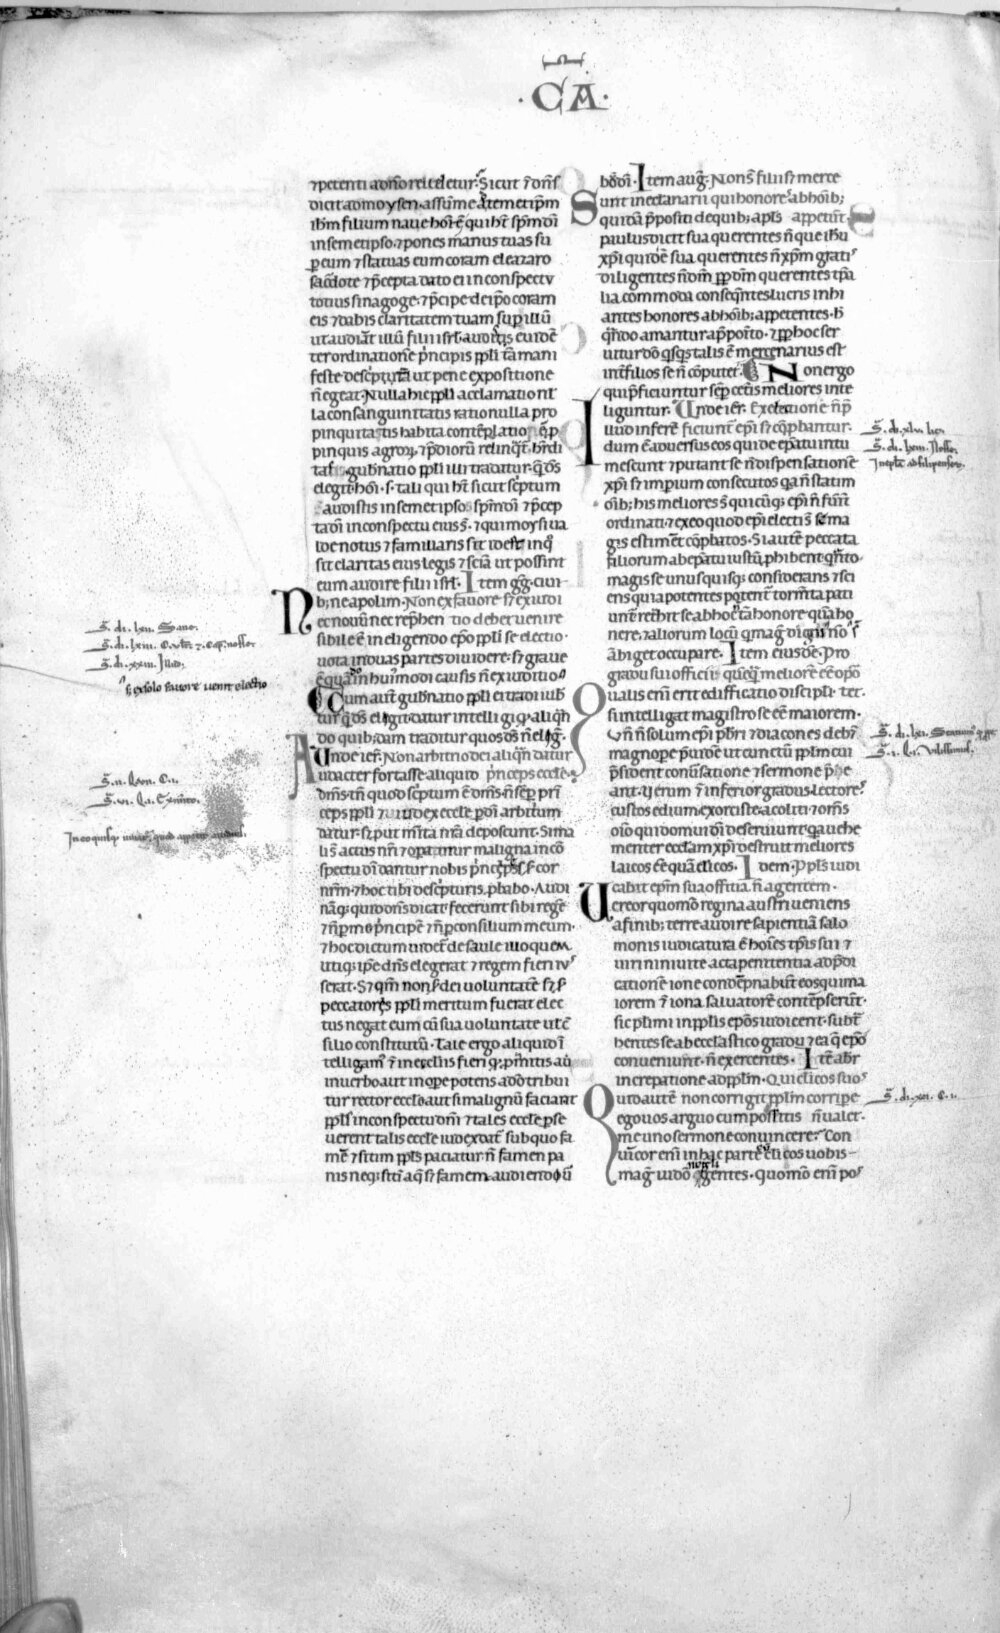 · CA ·
⁊petenti a dño relidetur. Sicut ⁊ dñs
dicit ad moysen. assume ad temetipm
ihm filium naue hoiem qui ht spm di
in semetipso. ⁊ pones manus tuas su
per eum ⁊ statuas eum coram eleazaro
sacdote ⁊ pcepta dato ei in conspectu
totius sinagoge. ⁊ pcipe de ipo coram
eis ⁊ dabis claritatem tuam sup illū
ut audiāt illū filii isrl. auditis euidē
ter ordinationē pncipis ppli tā mani
feste descptā ut pene expositione
ñ egeat. Nulla hic ppli acclamatio nl
la consanguinitatis ratio nulla pro
pinquitatis habita contēplatio
pinquis agroꝝ ⁊ pdioꝝ relinqt hrdi
tas gubnatio ppli illi tradit. q̄ dš
elegit. hoi. s. tali qui ht sicut sc̄ptum
audistis in semetipso spm di ⁊ pcep
ta di in conspectu eius s. ⁊ qui moysi ua
lde notus ⁊ familiaris sit id est in q
sit claritas eius legis ⁊ sciā ut possint
eum audire filii isrl. Item gg. ciui
b; neapolim. Non ex fauore s; ex iudi
Nec nouū nec rephen tio debet uenire
sibile ē in eligendo epo ppli se electio.
uota in duas partes diuidere. s; graue
ē quā in huiusmodi causis ñ ex iuditio
Cum aut gubnatio ppli ei tradi iub
tur q̄ dš eligit datur intelligi q; aliqn
do quib; dam traditur quos dš ñ elig.
Unde ier. Non arbitrio dei aliqn datur
Audacter fortasse aliquid pnceps eccle.
dñs. tñ quod sc̄ptum ē dñs. ñ sep pri
ceps ppli ⁊ iudex eccle p di arbitrium
datur. s; put mita nra deposcunt. Si ma
li s̄ actus nri ⁊ opamur maligna in cō
spectu di dantur nobis pncipes scd cor
nrm. ⁊ hoc tibi de sc̄pturis. pbabo. Audi
nāq; quid dñs dicat. fecerunt sibi regē
⁊ ñ p me pncipē ⁊ ñ p consilium meum.
⁊ hoc dictum uidet de saule illo quem
utiq; ipe dñs elegerat ⁊ regem fieri ius
serat. S; qm non scd dei uoluntatē s; scd
peccatores ppli meritum fuerat elec
tus negat eum cū sua uoluntate ut cō
silio constitutū. Tale ergo aliquid ī
telligam⁹ ⁊ in ecclis fieri q; p mitis aū
in uerbo aut in ope potens ado tribui
tur rector eccle aut si malignū faciant
ppls in conspectu dni ⁊ tales eccle pse
uerent talis eccle iudex dat. sub quo fa
mē ⁊ sitim ppls paciatur ñ famen pa
nis neq; sitī aq̄ s; famem audiendi ū
bū di. Item aug. Non s̄ filii s; merce
Sunt in ecla narii qui honorē ab hoib;
quidā ppositi de quib; apls appetunt.
paulus dicit sua querentes ñ que ihu
xpi qui dē sua querentes ñ xpm gratis
diligentes ñ dm pp dm querentes tpa
lia commoda conseqntes lucris inhi
antes honores ab hoib; appetentes. h
qndo amantur a pposito. ⁊ pp hoc ser
uitur dō qsqs talis ē mercenarius est
int filios se ñ cōputet. Non ergo
qui pficiuntur sep cetis meliores inte
liguntur. Unde ier. Exclatione ñ p
Iudo inferē ficiunt epi s; cōphantur.
dum ē aduersus eos qui de epatu intu
mescunt ⁊ putant se ñ dispensationē
xpi s; imperium consecutos q̄a ñ statim
oib; his meliores s̄ quicūq; epi ñ fuerint
ordinati. ⁊ ex eo quod epi electi s̄ se ma
gis estimet cōphatos. Si autē peccata
filiorum ab epatu iustū phibent qnto.
magis se unusquisq; considerans ⁊ sci
ens quia potentes potent tormta pati
unt rethrit se ab hoc nō tā honore quā ho
nere. ⁊ aliorum locū q̄ magis digni s̄ nō
ābiget occupare. Item eiusdē. Pro
gradu sui officii queq; meliorē eē opō
Qualis eni erit edifficatio discipli ter.
si intelligat magistro se eē maiorem.
Vn ñ solum epi pbri ⁊ diacones debēt
magnope puidē ut cunctū pplm cui
psident conuersatione ⁊ sermone phe
ant. Verum ⁊ inferior gradus lectores
custos edium exorciste acoliti ⁊ oms
oīo qui domui di deseruiunt q̄a uehe
menter ecclam xpi destruit meliores
laicos eē quā clicos. Idem. Ppls iudi
cabit epm sua offitia ñ agentem.
Uereor quomō regina austri ueniens
a finib; terre audire sapientiā salo
monis iudicatura ē hoies tpis sui ⁊
uiri niniuite acta penitentia ad pdi
cationē ione condēpnabunt eos quia ma
iorem ⁊ iona saluatorē contēpserūt.
sic plimi in pplis epos iudicent. subt
hentes se ab ecclastico gradu ⁊ ea q̄ epo
conueniunt. ñ exercentes. Itē abr
increpatione ad pplm. Qui clicos suos
Quid autē non corrigit pplm corripe
ego uos arguo cum possitis ñ ualet.
me uno sermone conuincere. Con
uicor eni in hac parte clicos uobis
mag iudō negligentes. Quomō eni pos
S̄. di. lxii. Sane.
S̄. di. lxiii. C. ult. ⁊. Cap. nosse.
S̄. di. xxiii. Illud.
s; ex solo fauore uenit electio
S̄. di. xlu. lic.
S̄. di. lxi.
S̄. di. xxi. C. i.